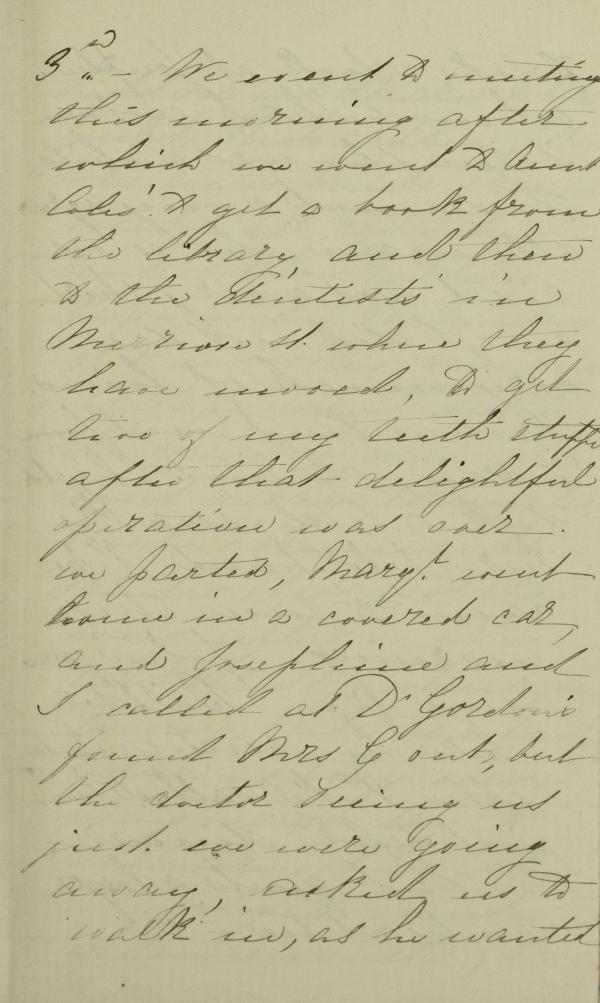 3rd - We went to meeting
this morning after
which we went to Aunt
Coles' to get a book from
the library, and then
to the dentists' in
Merrion St. where they
have moved, to get
two of my teeth stuffed
after that delightful
operation was over.
we parted, Margt. went
home in a covered car,
and Josephine and
I called at Dr Gordon's
found Mrs G out, but
the doctor seeing us
just we were going
away, asked us to
walk in, as he wanted